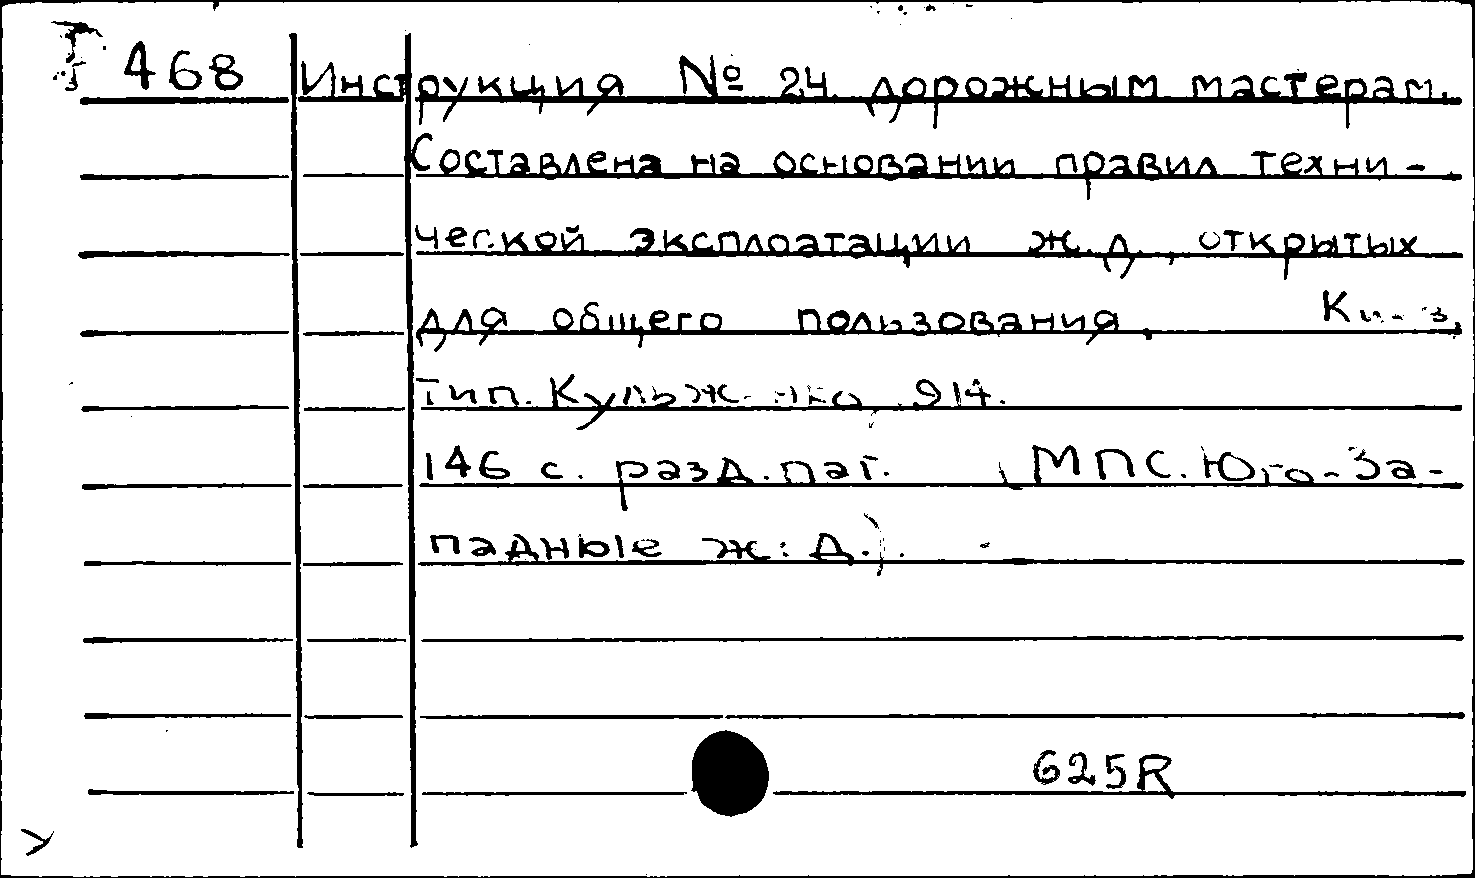 468 Инструкция № 24 дорожным мастерам.
Составлена на основании правил техни-
ческой эксплоатации ж.д., открытых
для общего пользования,
тип. Кульженко, 914.
146 с. разд. паг. (МПС. Юго-За-
падные ж. д.).
625R